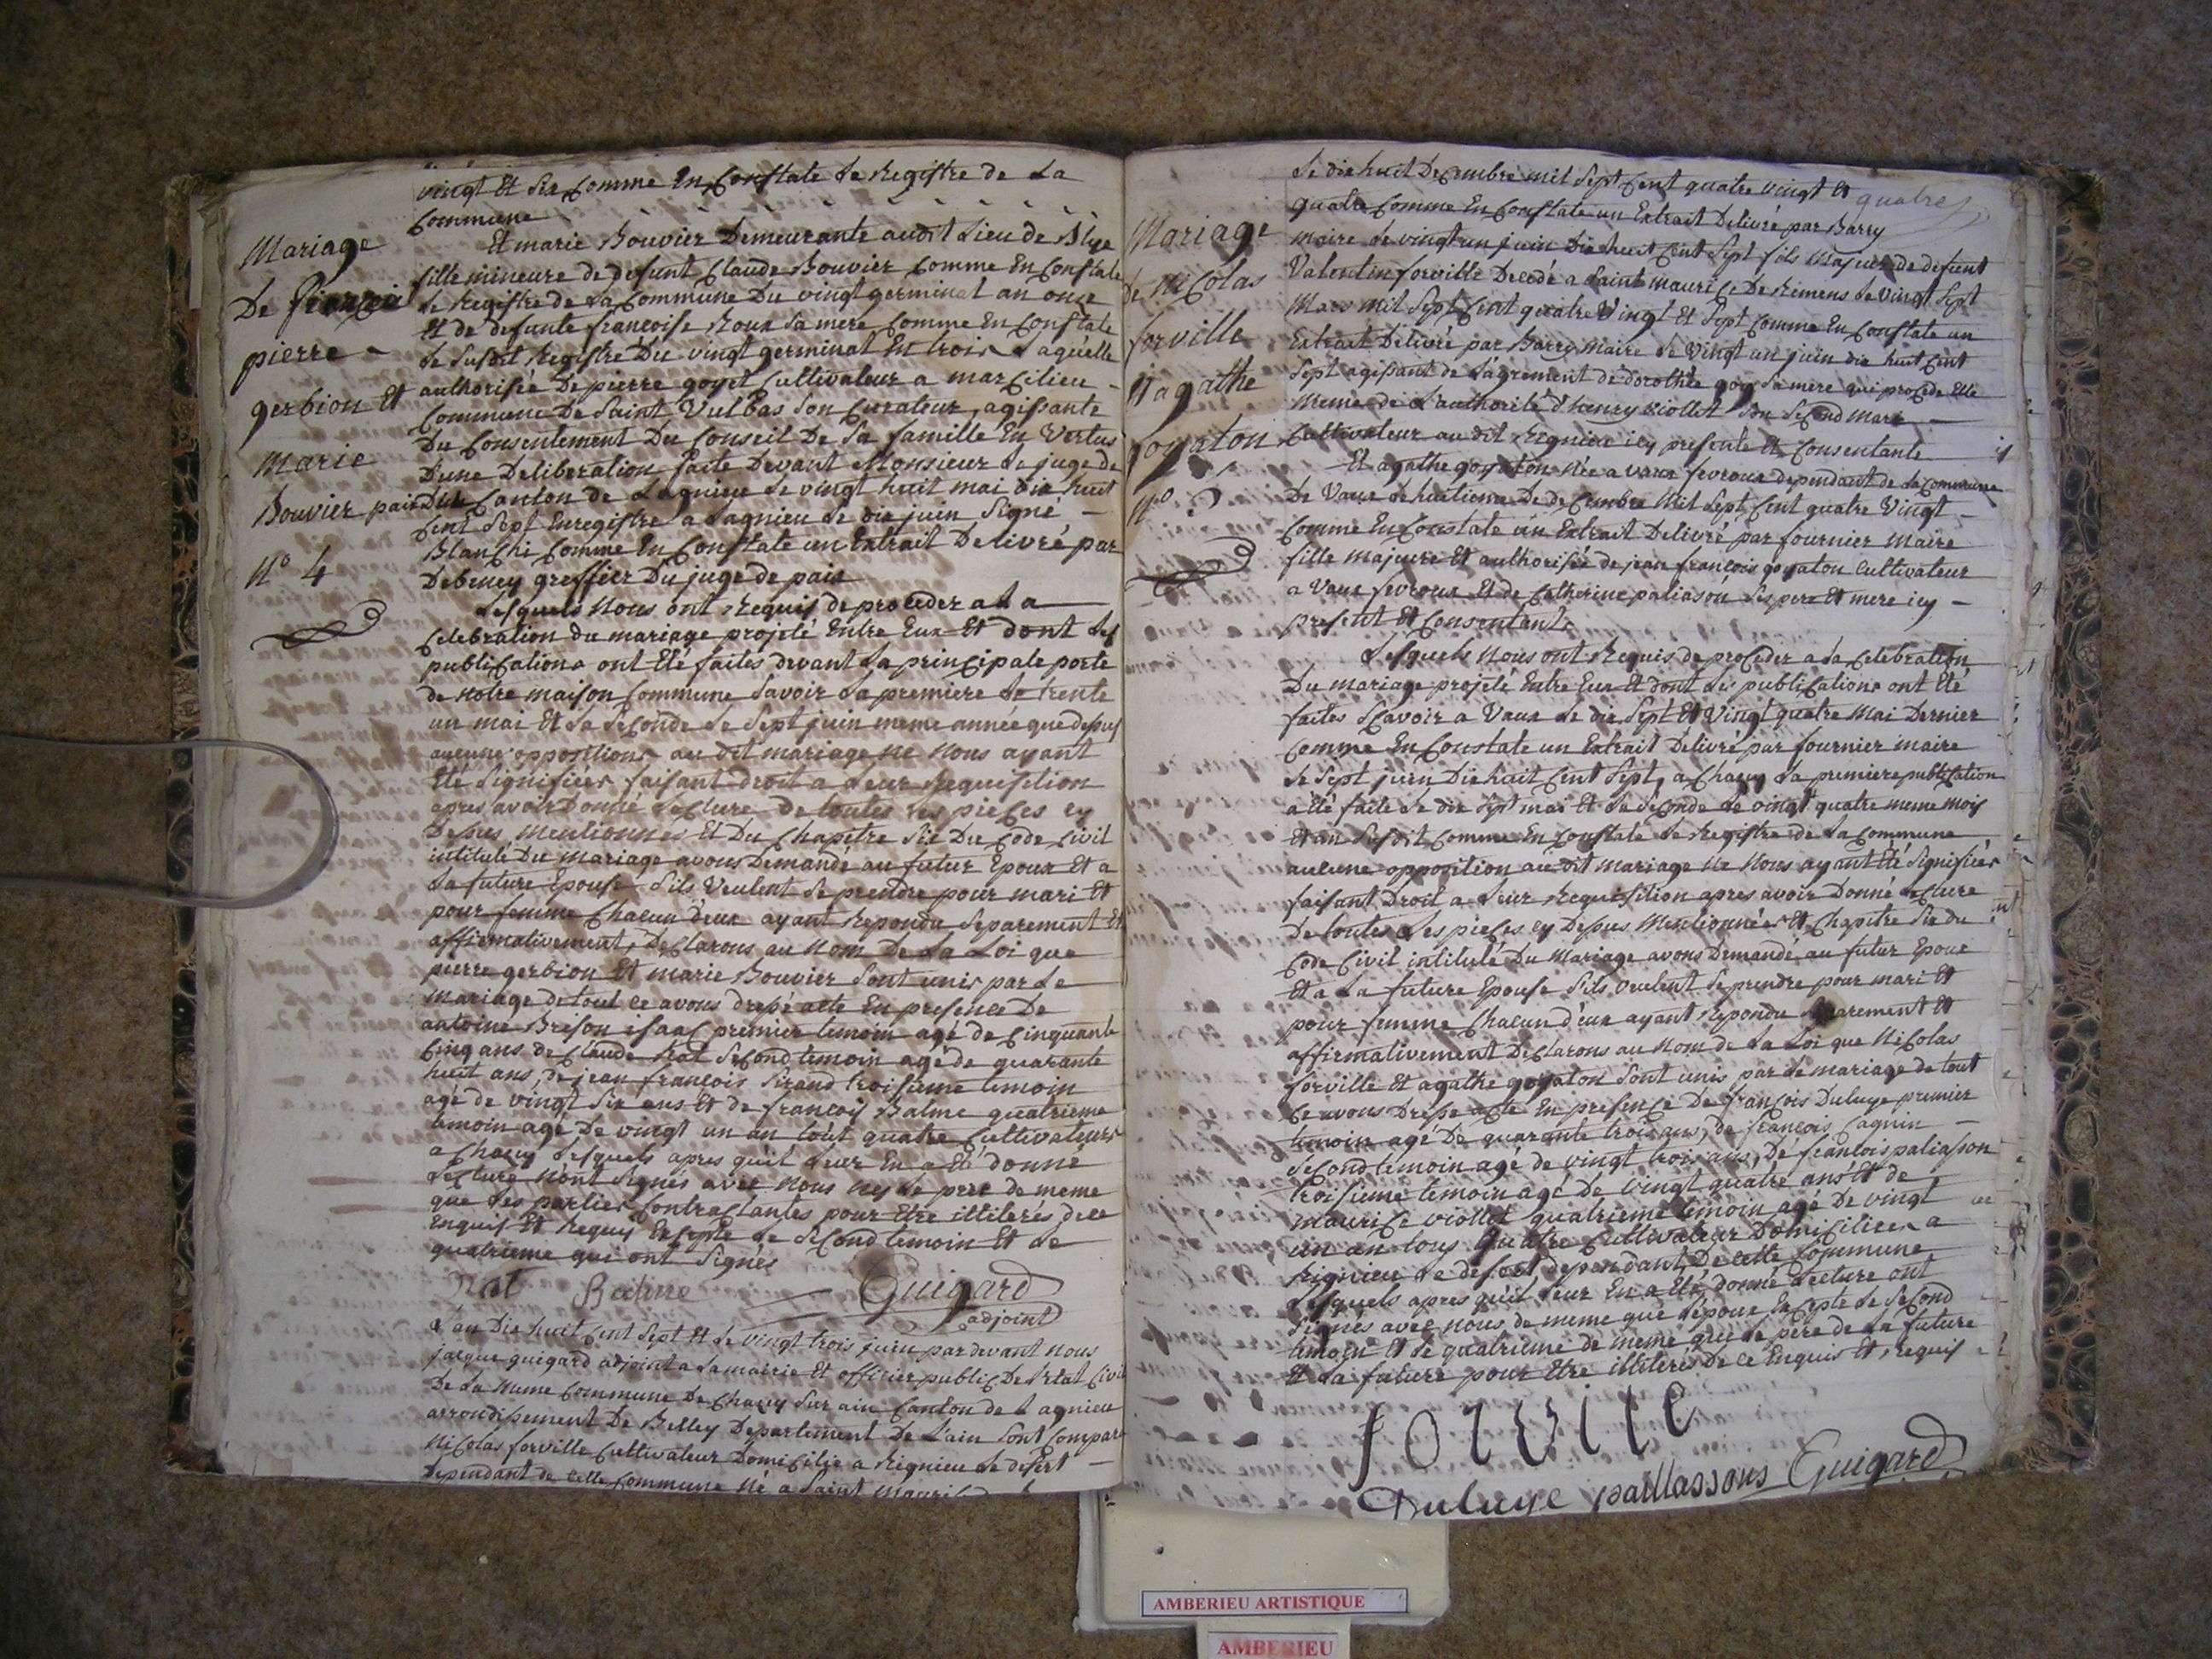 vingt et six comme en constate le registre de la
commune
Mariage
De françois
pierre
gerbion et
marie
Bouvier
N° 4
Et marie Bouvier Demeurante audit lieu de Blye
fille mineure de defunt Claude Bouvier comme en constate
le registre de la commune Du vingt germinal an onze
et de defunte françoise Roux sa mere comme en constate
le susdit registre Du vingt germinal en trois laquelle
authorisée De pierre goyet cultivateur a marcilieu
commune De Saint Vulbas son curateur, agissante
Du consentement Du conseil De sa famille en Vertus
Dune Deliberation faite Devant Monsieur le juge de
paix Du Canton de Lagnieu le vingt huit mai dix huit
cent sept enregistre a Lagnieu le dix juin signé
Blanchi comme en constate un extrait Delivré par
Debeney greffier Du juge de paix
Lesquels nous ont requis de proceder a la
celebration du mariage projeté entre eux et dont les
publications ont été faites devant la principale porte
de notre maison commune savoir la premiere le trente
un mai et la seconde le sept juin meme année que dessus
aucune oppositions au dit mariage ne nous ayant
été signifiées faisant droit a leur requisition
apres avoir Donné lecture de toutes les pieces cy
Dessus mentionnes et Du chapitre six Du code civil
intitulé Du mariage avons Demandé au futur epoux et a
la future epouse sils veulent se prendre pour mari et
pour femme chacun d'eux ayant repondu separement et
affirmativement, Declarons au nom De la Loi que
pierre gerbion et marie Bouvier sont unis par le
mariage de tout ce avons dressé acte en presence De
antoine Brison isaac premier temoin agé de cinquante
cinq ans de Claude Rat second temoin agé de quarante
huit ans, de jean françois Sirand troisieme temoin
agé de vingt six ans et de françois Balme quatrieme
temoin agé De vingt un an tout quatre cultivateurs
a Chazey lesquels apres qu'il leur en a été donné
lecture n'ont signés avec nous ney le pere de meme
que les parties contractantes pour etre illiterés dece
enquis et requis excepté le second temoin et le
quatrieme qui ont signés
Rat Balme Guigard
adjoint
L'an Dix huit cent sept et le vingt trois juin par devant nous
jacque guigard adjoint a la mairie et officier public De l'etat Civil
De la meme commune De Chazey sur ain Canton de Lagnieu
arrondissement De Belley Departement De L'ain sont compare
Nicolas forville cultivateur Domicilié a Rignieu le desert
Dependant de cette commune né a Saint Maurice
le dix huit Decembre mil sept cent quatre vingt et quatres
quatre comme en constate un extrait Delivré par Barry
Mariage
de nicolas
forville
et agathe
goyaton
N° 5
maire le vingt un juin dix huit cent sept fils majeur de defunt
Valentin forville Decedé a Saint maurice De Remens le vingt sept
Mars mil sept cent quatre Vingt et sept comme en constate un
extrait Delivré par Barry maire le Vingt un juin dix huit cent
sept agissant de l'agrement de dorothée goy sa mere qui procede elle
meme de l'authorité d'henry viollet son second mari
cultivateur au dit Regnieu icy presente et consentante
Et agathe goyaton née a vaux fevroux dependant de la commune
De Vaux le huitieme De decembre mil sept cent quatre Vingt
comme en constate un extrait Delivré par fournier maire
fille majeure et authorisée de jean françois goyaton cultivateur
a Vaux fevroux et de Catherine paliason ses pere et mere icy
present et consentants
Lesquels nous ont requis de proceder a la celebration
Du mariage projeté entre eux et dont les publications ont été
faites sçavoir a Vaux le dix sept et vingt quatre mai Dernier
comme en constate un extrait Delivré par fournier maire
le sept juin Dix huit cent sept, a Chazey la premiere publication
a été faite le dix sept mai et la seconde le vingt quatre meme mois
et an susdit comme en constate le registre de la commune
aucune opposition au dit mariage ne nous ayant été signifiées
faisant Droit a leur requisition apres avoir Donné lecture
De toutes les pieces cy Dessus mentionnées et chapitre six du
Code Civil intitulé Du mariage avons Demandé au futur epoux
et a la future epouse sils veulent se prendre pour mari et
pour femme chacun d'eux ayant repondu separement et
affirmativement Declarons au nom de la Loi que Nicolas
forville et agathe goyaton sont unis par le mariage de tout
ce avons Dressé acte en presence De françois Duluye premier
temoin agé De quarante trois ans, de françois Cagnin
second temoin agé de vingt trois ans, De françois paliasson
troisieme temoin agé De vingt quatre ans et de
maurice viollet quatrieme temoin agé De vingt
un an tous quatre cultivateur Domiciliées a
Rignieu le desert dependant De cette commune
Lesquels apres qu'il leur en a été donné lecture ont
signés avec nous de meme que l'epoux excepté le second
temoin et le quatrieme de meme que le pere de la future
et la future pour etre illiterés De ce enquis et requis
forville
Duluye paillassons Guigard
AMBERIEU ARTISTIQUE
AMBERIEU